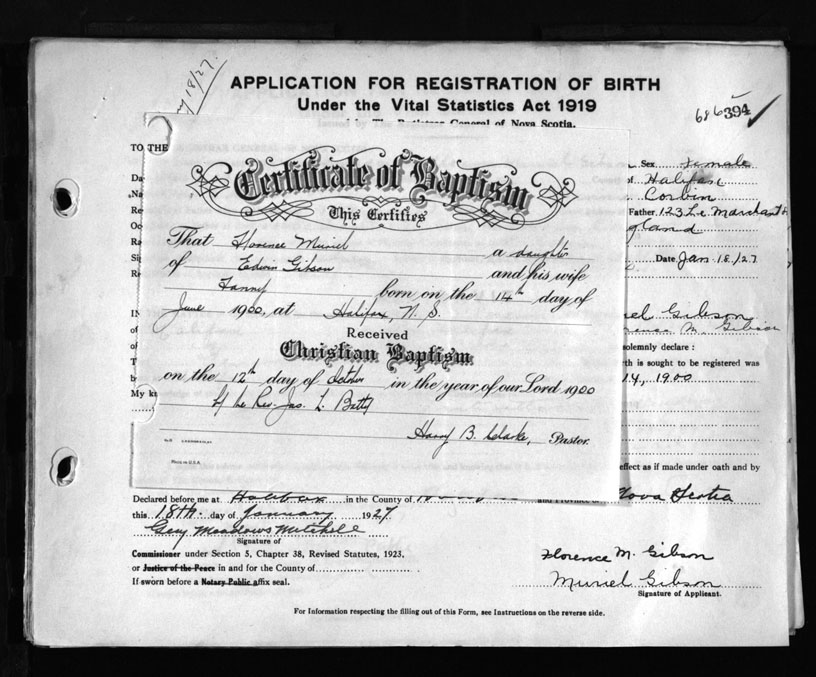 ny 18/27.
APPLICATION FOR REGISTRATION OF BIRTH
Under the Vital Statistics Act 1919
General of Nova Scotia.
686394
TO THE
Sex Female
of Halifax
Corbin
Father, 123 Le Marchant
gland
Date Jan 18/27
Gibson
M. Gibson
solemnly declare :
th is sought to be registered was
14, 1900
My
Certificate of Baptism
This Certifies
That Florence Muriel a daughter
of Edwin Gibson and his wife
Fanny born on the 14th day of
June 1900, at Halifax, N. S.
Received
Christian Baptism
on the 12th day of October in the year of our Lord 1900
by the Rev. Jas. L. Batty
Harry B. Clarke, Pastor.
MADE IN U.S.A
effect as if made under oath and by
Declared before me at Halifax in the County of and Province of Nova Scotia
this 18th day of January 1927
Meadows Mitchell
Signature of
Commissioner under Section 5, Chapter 38, Revised Statutes, 1923,
or Justice of the Peace in and for the County of
If sworn before a Notary Public affix seal.
Florence M. Gibson
Muriel Gibson
Signature of Applicant.
For Information respecting the filling out of this Form, see Instructions on the reverse side.